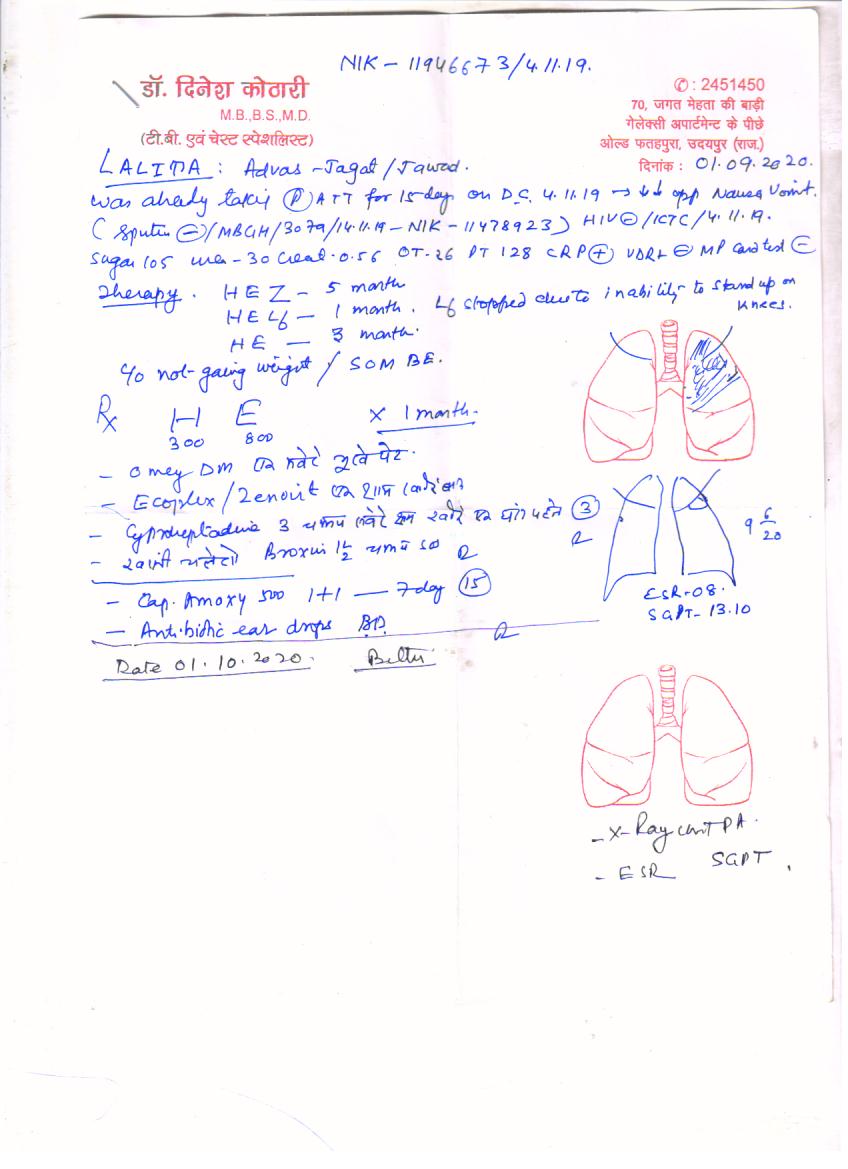 NIK - 11946673/4.11.19.
डॉ. दिनेश कोठारी
M.B.,B.S.,M.D.
(टी.बी. एवं चेस्ट स्पेशलिस्ट)
✆ : 2451450
70, जगत मेहता की बाड़ी
गेलेक्सी अपार्टमेन्ट के पीछे
ओल्ड फतहपुरा, उदयपुर (राज.)
दिनांक : 01.09.2020.
LALITA : Advas - Jagat/Jawad.
was already taking (P) ATT for 15 day on D.C. 4.11.19 → ↓↓ app Nausea Vomit.
( Sputm ⊖/MBGH/3079/14.11.19 - NIK - 11478923) HIV ⊖/ICTC/4.11.19.
Sugar 105 urea - 30 Creat. 0.56 OT-26 PT 128 CRP ⊕ VDRL ⊖ MP Card test ⊖
Therapy. HEZ - 5 month
HELf - 1 month. Lf stopped due to inability to stand up on Knees.
HE - 3 month.
C/o not-gaing weight / SOM BE.
Rx H E x 1 month.
300 800
- Omey DM एक सवेरे भूखे पेट.
- Ecoplex / Zenovit एक शाम
- Cyproheptadine 3 चम्मच ③
- Broxin 1½ चम्मच
- Cap. Amoxy 500 1+1 — 7 day ⑮
- Antibiotic ear drops BD.
9 6/20
ESR-08.
SGPT- 13.10
Date 01.10.2020.
- X-Ray chest PA.
- ESR SGPT